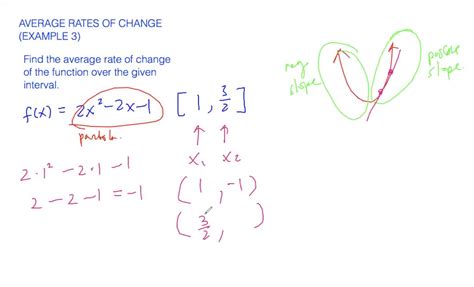 AVERAGE RATES OF CHANGE
(EXAMPLE 3)
Find the average rate of change
of the function over the given
interval.
f(x) = 2x²-2x-1 [1, 3/2]
x₁ x₂
2·1² - 2·1 - 1
2 - 2 - 1 = -1
(1, -1)
(3/2, )
neg
slope
slope.